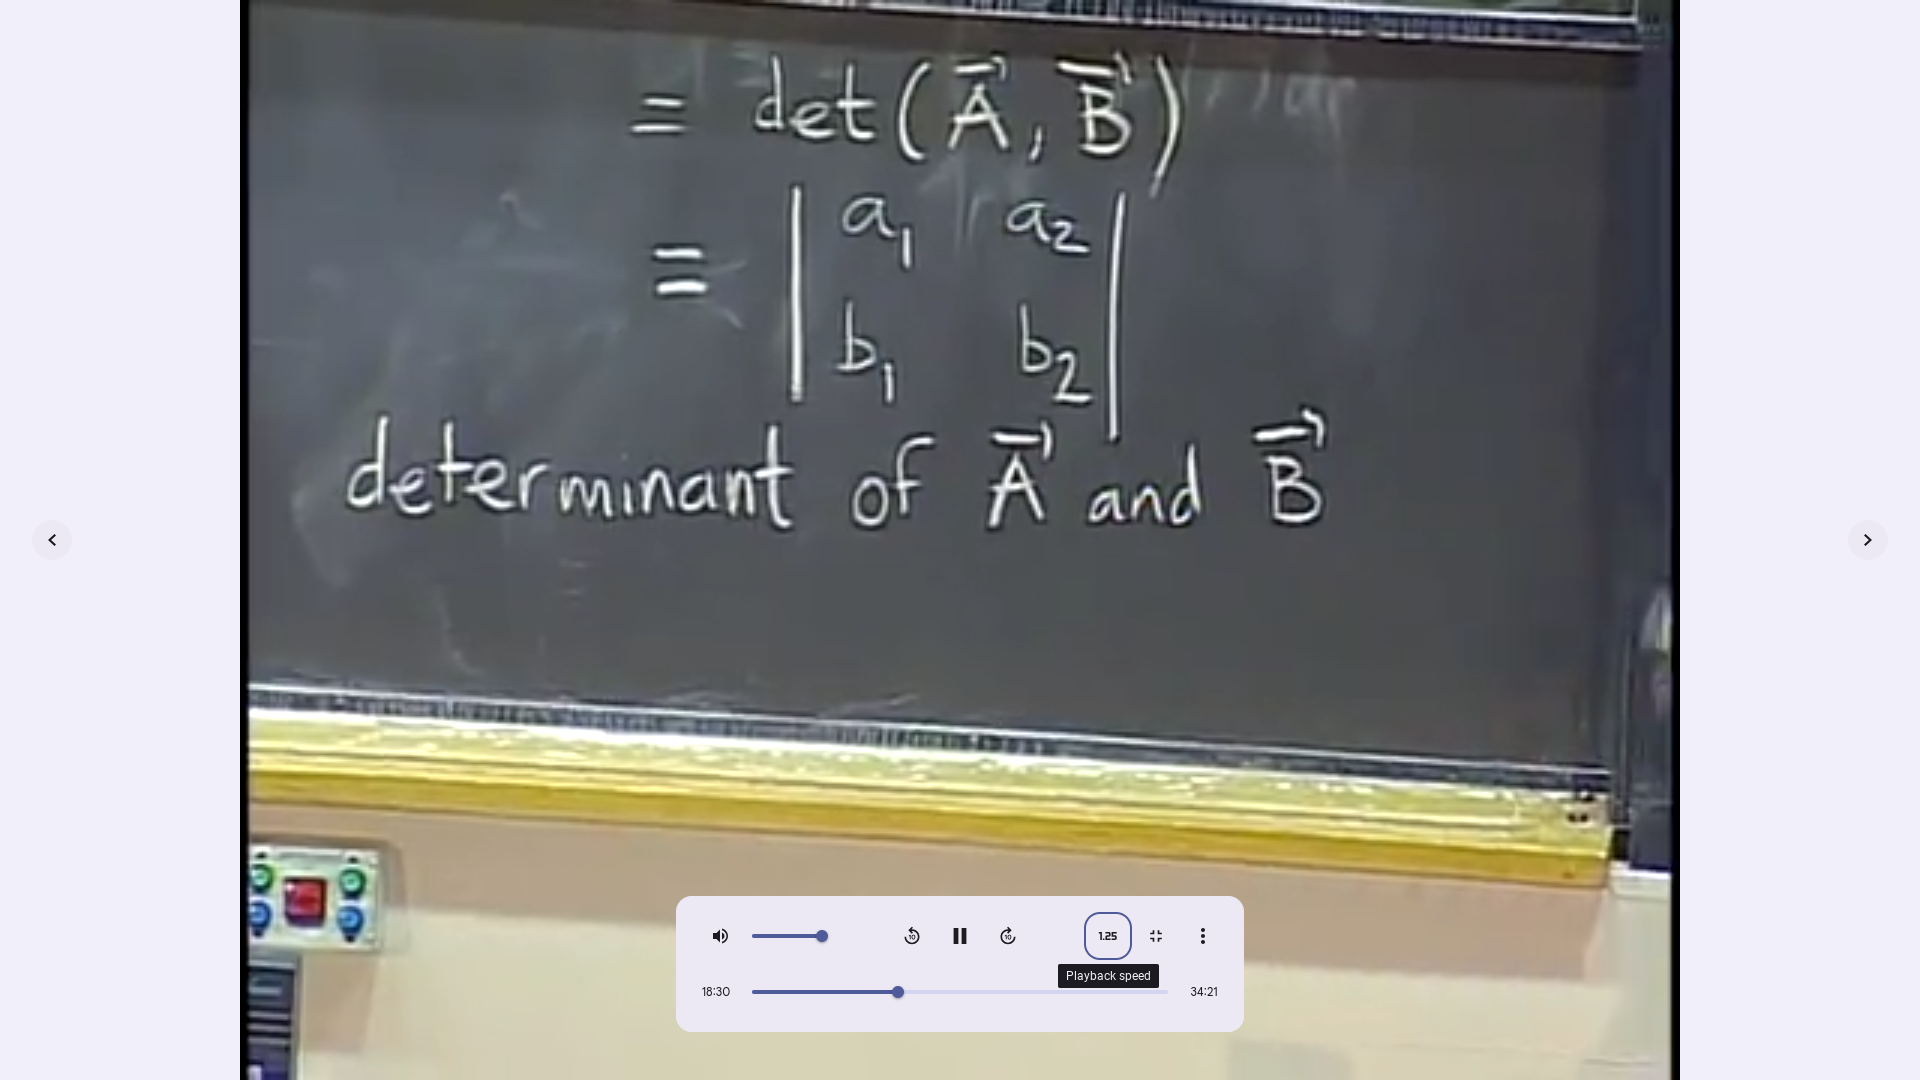 = det(A, B)
= | a1 a2 |
| b1 b2 |
determinant of A and B
10
10
1.25
Playback speed
18:30
34:21